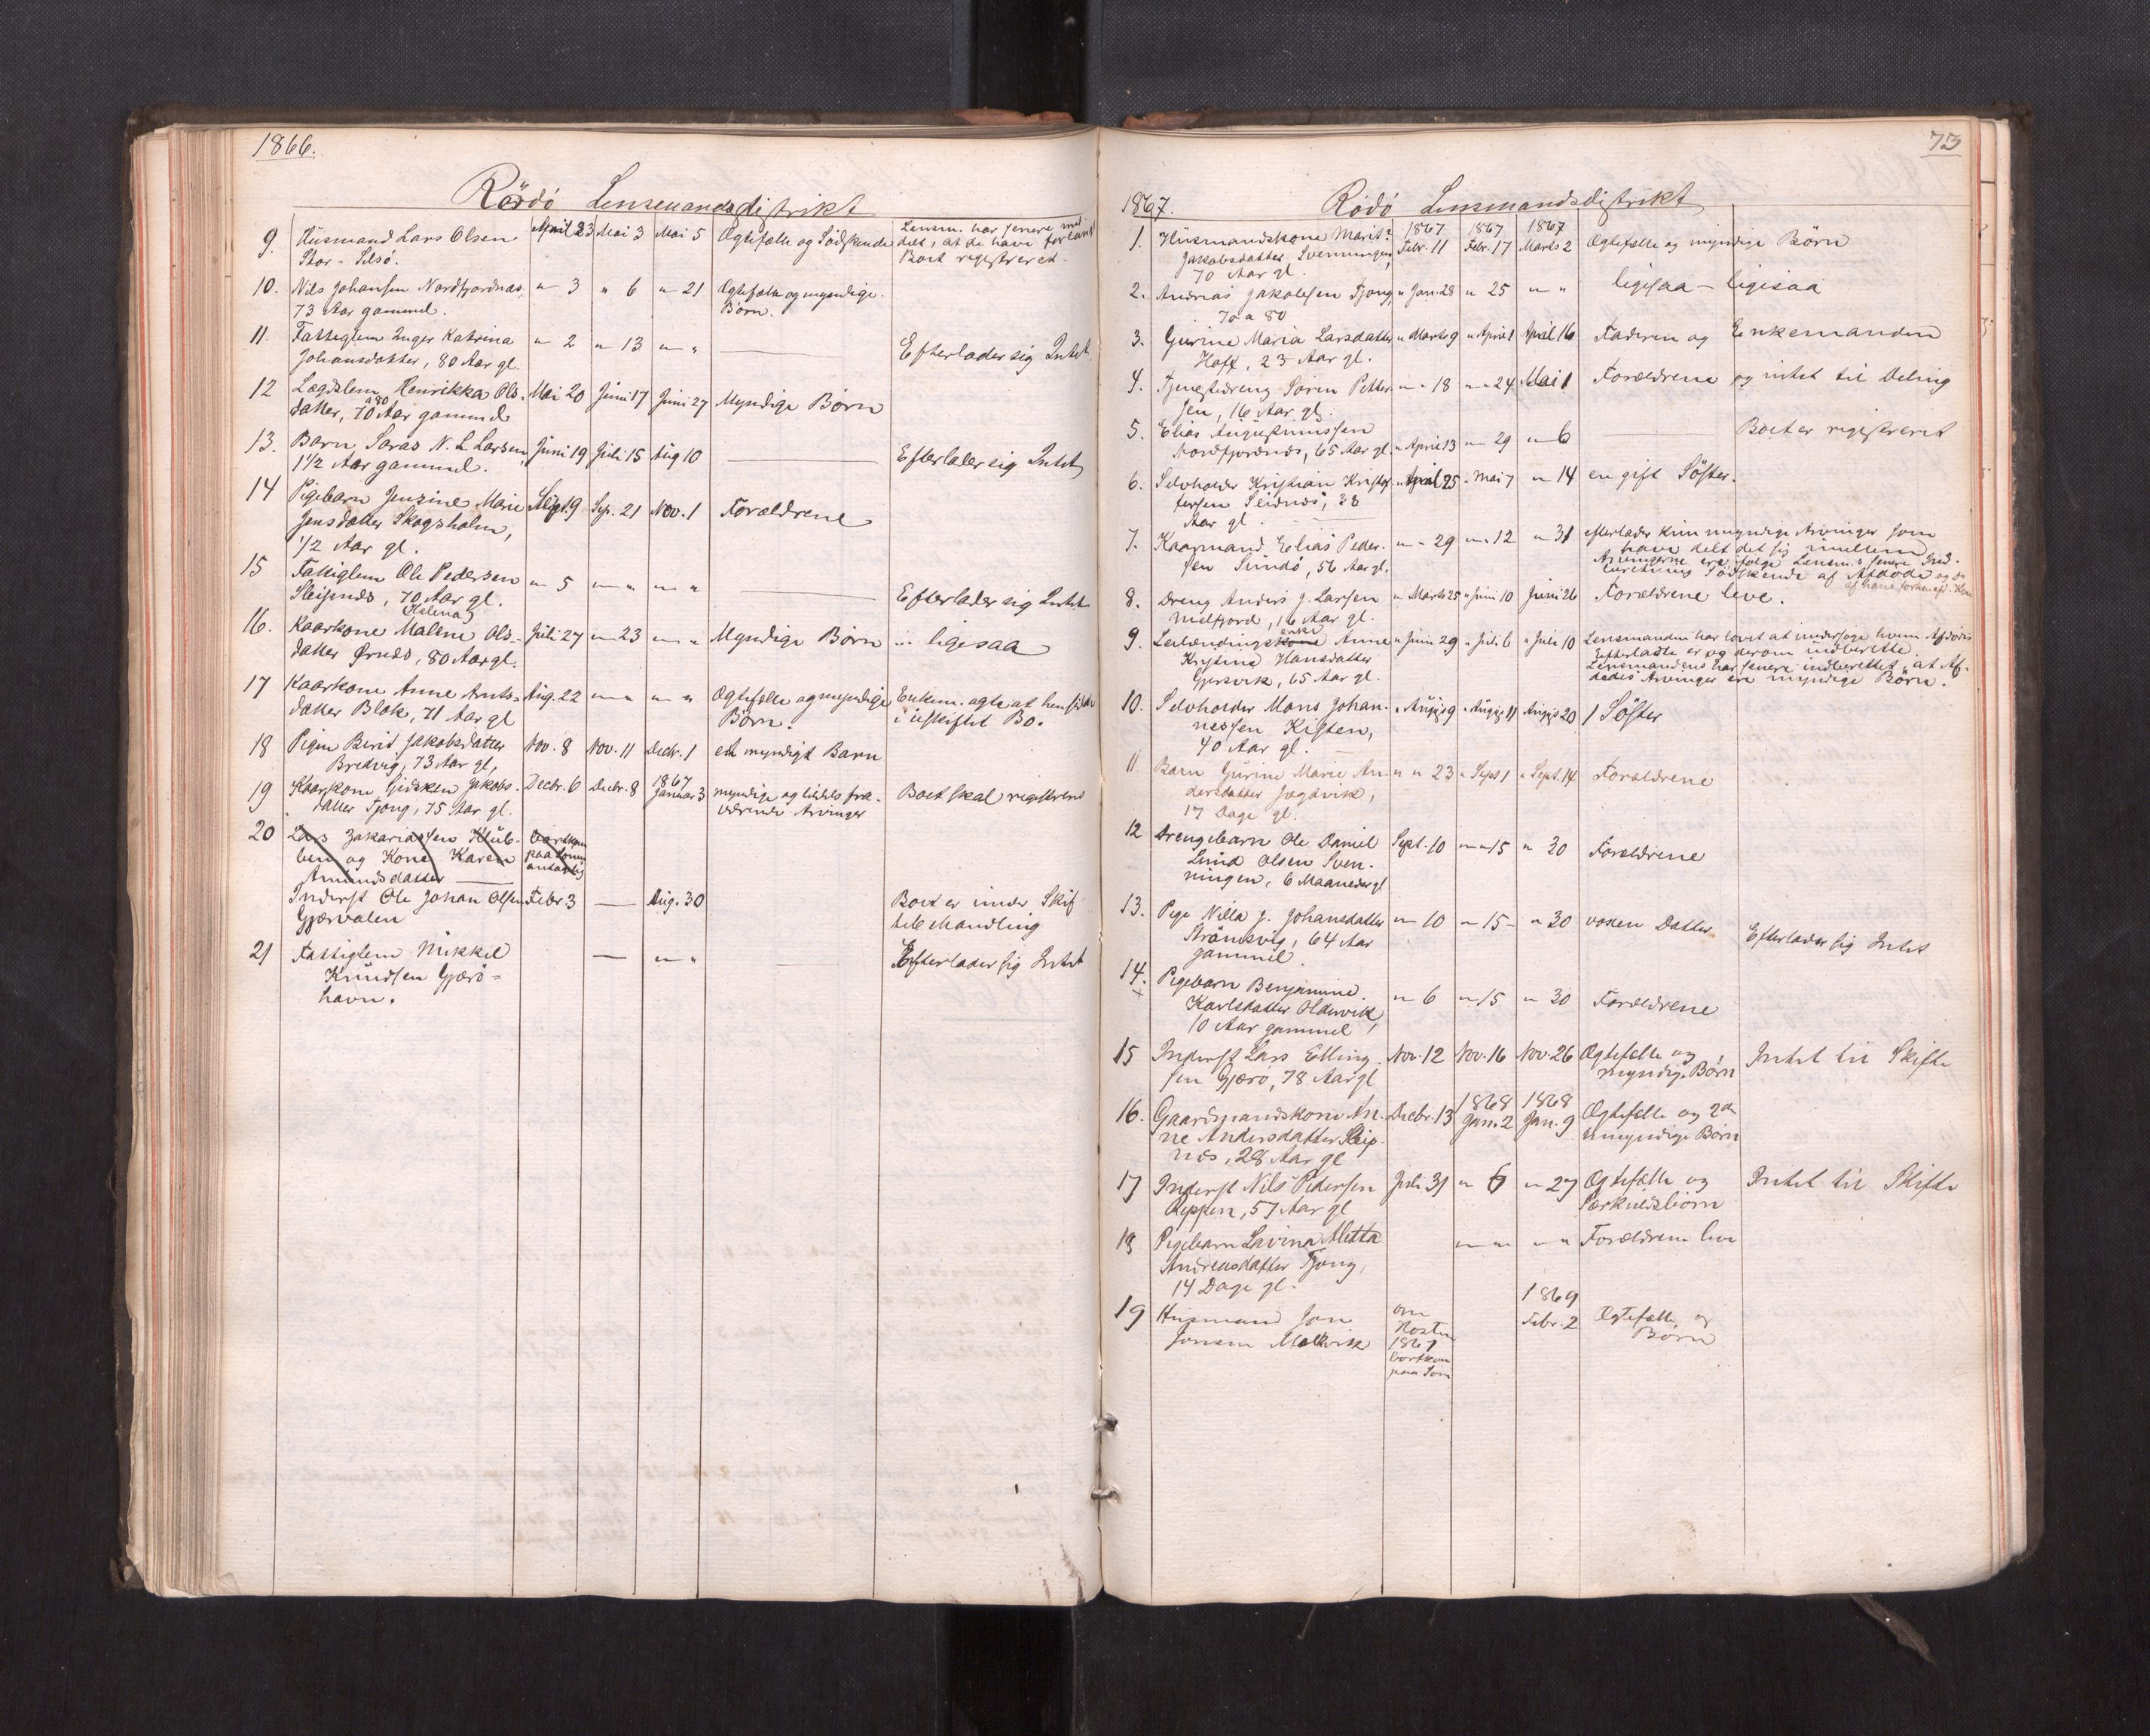 1866.
Rödö Lensmandsdistrikt
9. Husmand Lars Olsen April 23 Mai 3 Mai 5 Ægtefælle og Södskende Lensm. har senere med
Stor-Selsö. delt, at de have forlangt
Boet registreret.
10. Nils Johansen Nordfjordnæs, " 3 " 6 " 21 Ægtefælle og myndige
73 Aar gammel. Börn.
11. Fattiglem Inger Katrina " 2 " 13 " " — Efterlader sig Intet.
Johansdatter, 80 Aar gl.
12 Lægdslem Henrikka Ols- Mai 20 Juni 17 Juni 27 Myndige Börn
a 80
datter, 70 Aar gammel
13. Barn Saras N. L. Larsen, Juni 19 Juli 15 Aug 10 — Efterlader sig Intet
1 1/2 Aar gammel.
14 Pigebarn Jensine Marie Sept. 9 Sep. 21 Nov. 1 Forældrene
Jensdatter Skogsholm,
1/2 Aar gl.
15 Fattiglem Ole Pedersen " 5 " " " " — Efterlader sig Intet
Sleipnæs, 70 Aar gl.
Helena
16. Kaarkone Malene Ols- Juli 27 " 23 " " Myndige Börn ligesaa
datter Ørnæs, 80 Aar gl.
17 Kaarkone Anne Arnts- Aug. 22 " " " " Ægtefælle og myndige Enkem. agte at hensidde
datter Blok, 71 Aar gl Börn. i uskiftet Bo.
18 Pigen Berit Jakobsdatter Nov. 8 Nov. 11 Decbr. 1 et myndigt Barn
Bredvig, 73 Aar gl,
19 Kaarkone Gidsken Jakobs- Decbr. 6 Decbr. 8 1867 Januar 3 myndige og tildels fra- Boet skal registreres
datter Tjong, 75 Aar gl. værende Arvinger
20 Lars Zakariassen Klub- bortkom
ben og Kone Karen paa Soen
Amundsdatter antagelig
Inderst Ole Johan Olsen Febr. 3 — Aug. 30 Boet er under Skif
Gjærvalen tebehandling
21 Fattiglem Mikkel — " " — Efterlader sig Intet
Knudsen Gjærö-
havn.
73
1867. Rödö Lensmandsdistrikt
1867 1867 1867
1. Husmandskone Marit Febr. 11 Febr. 17 Marts 2 Ægtefælle og myndige Börn
Jakobsdatter, Svenningen,
70 Aar gl.
2. Andreas Jakobsen Tjong, " Jan. 28 " 25 " " ligesaa — ligesaa
70 a 80
3. Gurine Maria Larsdatter " Marts 9 " April 1 April 16 Faderen og Enkemanden
Hoff, 23 Aar gl.
4. Tjenestedreng Sören Petter " " 18 " " 24 Mai 1 Forældrene og intet til Deling
sen, 16 Aar gl.
5. Elias Augustinussen " April 13 " 29 " 6 — Boet er registreret
Nordfjordnæs, 65 Aar gl.
6. Selvholder Kristian Kristof- " April 25 " Mai 7 " 14 en gift Söster.
fersen Seidnæs, 38
Aar gl.
7. Kaarmand Elias Peder- " " 29 " " 12 " 31 efterlader kun myndige Arvinger som
sen Sundö, 56 Aar gl. have delt det sig imellem
Arvingerne ere ifölge Lensm.s senere Ind-
beretning Södskende af Afdöde og
8. Dreng Anders J. Larsen " Marts 25 " Juni 10 Juni 26 Forældrene leve.
Melfjord, 16 Aar gl.
enke
9. Leilændingskone Anne " Juni 29 " Juli 6 " Juli 10 Lensmanden har lovet at undersöge hvem Afdödes
Krystine Hansdatter Efterladte er og derom indberette.
Gjersvik, 65 Aar gl. Lensmanden har senere indberettet, at Af-
dödes Arvinger ere myndige Börn.
10. Selvholder Mons Johan- " Augs 9 " Augs 11 Augs 20 1 Söster
nessen Kisten,
40 Aar gl.
11 Barn Gurine Marie An- " " 23 " Sept 1 " Sept. 14 Forældrene
dersdatter Jægtvik,
17 Dage gl.
12 Drengebarn Ole Daniel Sept. 10 " " 15 " 30 Forældrene
Lund Olsen Sven-
ningen, 6 Maaneder gl
13. Pige Nilla J. Johansdatter " 10 " 15 " 30 voxen Datter Efterlader sig Intet
Strömsvig, 64 Aar
gammel.
14. Pigebarn Benjamine " 6 " 15 " 30 Forældrene
Karlsdatter Oldervik,
10 Aar gammel
15 Inderst Lars Elling Nov. 12 Nov. 16 Nov. 26 Ægtefælle og Intet til Skifte
sen Gjærö, 78 Aar gl myndige Börn
1868 1868
16. Gaardmandskone An- Decbr. 13 Jan. 2 Jan. 9 Ægtefælle og 2de
ne Andersdatter Sleip- umyndige Börn
næs, 28 Aar gl
17 Inderst Nils Pedersen Juli 31 " 6 " 27 Ægtefælle og Intet til Skifte
Reppen, 57 Aar gl Særkuldsbörn
18 Pigebarn Lavina Aletta " " " " Forældrene leve
Andreasdatter Tjong,
14 Dage gl.
1869
19 Husmand Jon om Febr. 2 Ægtefælle og
Jonsen Melkvik Hösten Börn
1867
bortkom
paa Soen